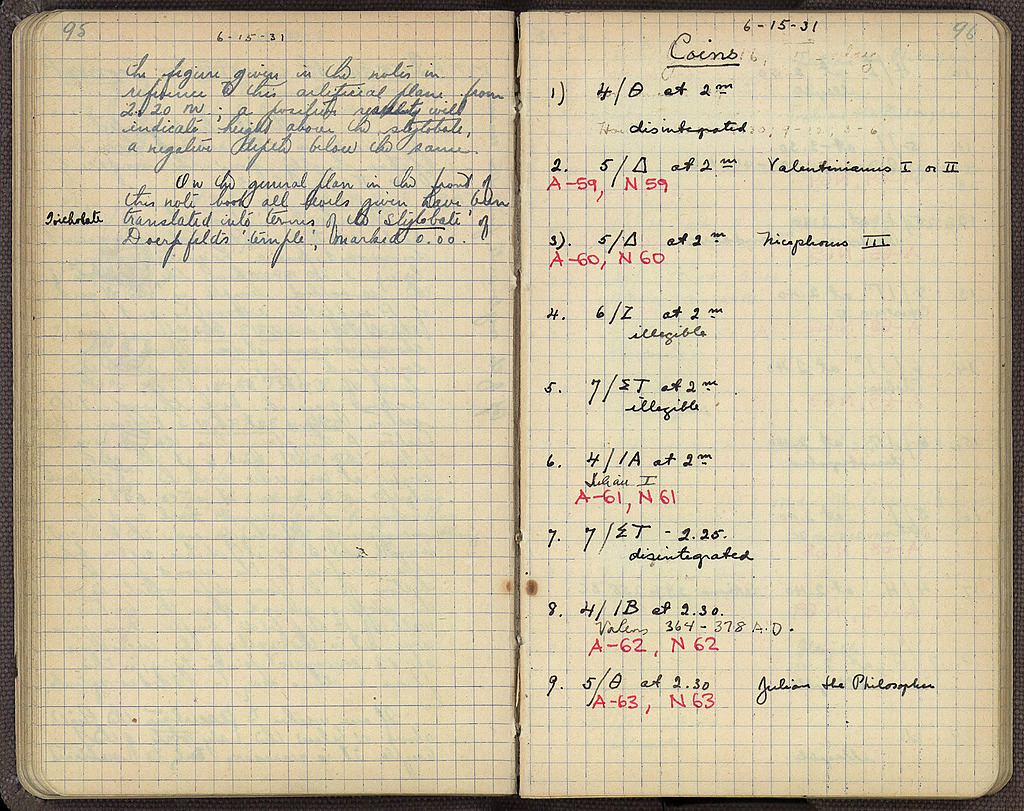 95
6-15-31
the figure given in the notes in
reference to this artificial plane from
2.20 m; a positive will
indicate height above the stylobate,
a negative depth below the same.
On the general plan in the front of
this note book all levels given have been
translated into terms of the 'stylobate' of
Doerpfeld's 'temple', marked 0.00.
6-15-31
96
Coins
1) 4/Θ at 2m
disintegrated
2. 5/Δ at 2m Valentinianus I or II
A-59, N59
3). 5/Δ at 2m Nicephorus III
A-60, N60
4. 6/I at 2m
illegible
5. 7/ΣT at 2m
illegible
6. 4/IA at 2m
Julian I
A-61, N61
7. 7/ΣT - 2.25.
disintegrated
8. 4/IB at 2.30.
Valens 364-378 A.D.
A-62, N62
9. 5/Θ at 2.30 Julian the Philosopher
A-63, N63